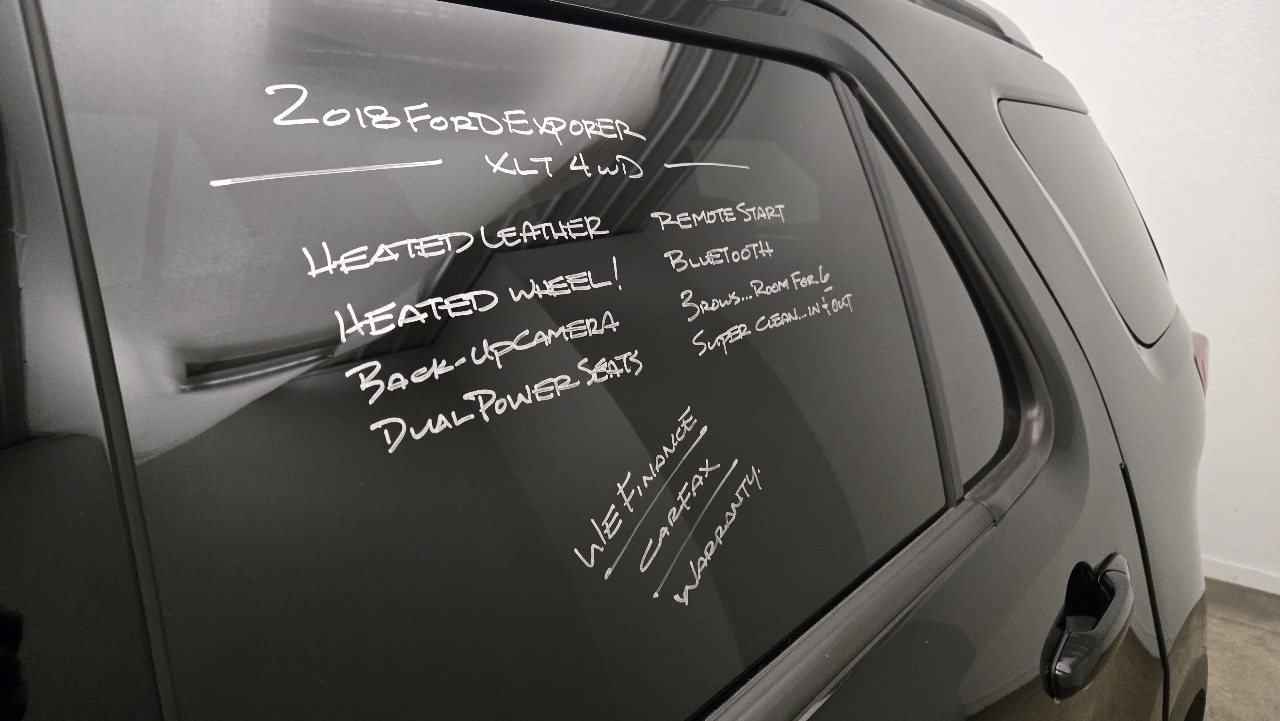 2018 FORD EXPORER
XLT 4WD
HEATED LEATHER
HEATED WHEEL!
BACK-UP CAMERA
DUAL POWER SEATS
REMOTE START
BLUETOOTH
3 ROWS... ROOM FOR 6
SUPER CLEAN... IN & OUT
WE FINANCE
CARFAX
WARRANTY.